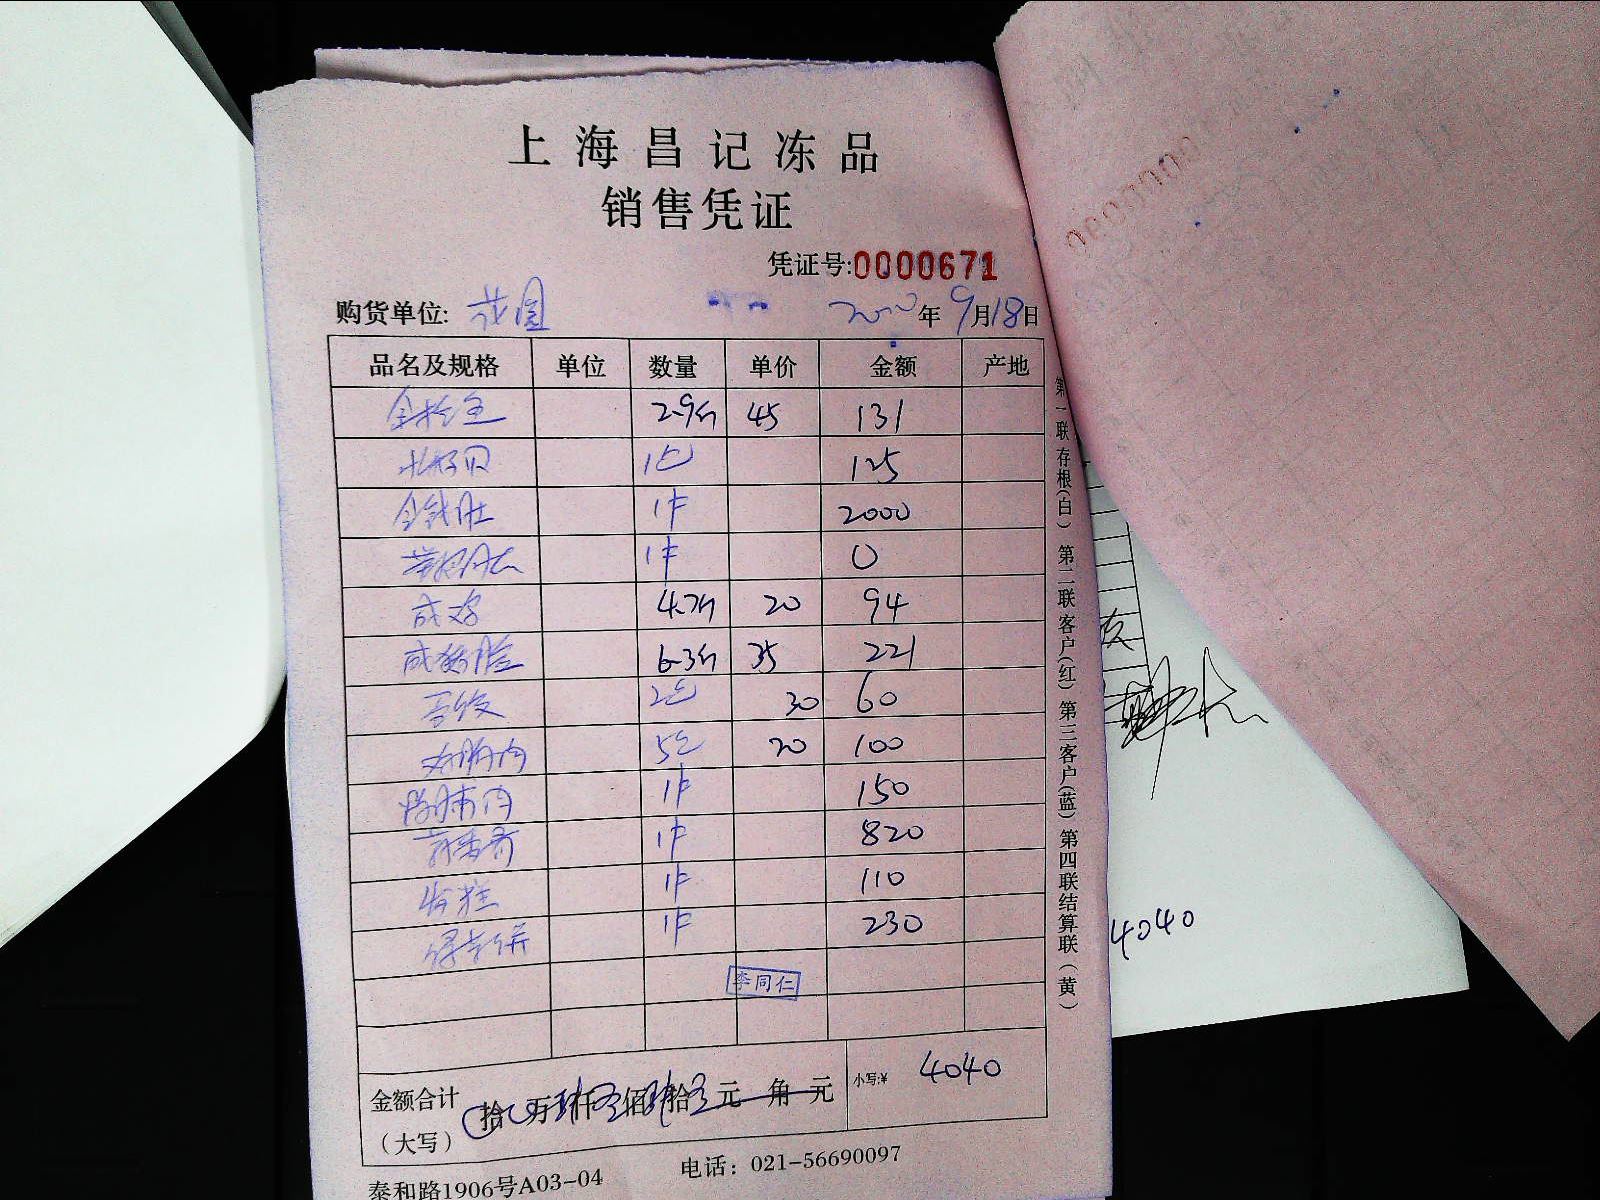 上海昌记冻品
销售凭证
凭证号:0000671
购货单位: 花园 2020年9月18日
品名及规格 单位 数量 单价 金额 产地
金枪鱼 2.9斤 45 131
北极贝 1包 125
金钱肚 1件 2000
1件 0
咸鸡 4.7斤 20 94
咸猪脸 6.3斤 35 221
2包 30 60
5包 20 100
1件 150
1件 820
1件 110
1件 230
李同仁
金额合计 拾 万 仟 佰 拾 元 角 元 小写:¥ 4040
(大写)
泰和路1906号A03-04 电话: 021-56690097
第一联存根(白) 第二联客户(红) 第三客户(蓝) 第四联结算联(黄)
4040